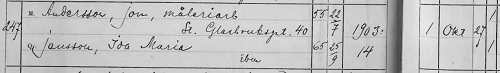 m Andersson, Jon, måleriarb 55 22/7
247 St. Glasbruksgt. 40 1903: 1 Okt 27 1
Jansson, Ida Maria 65 25/9 14
Eber